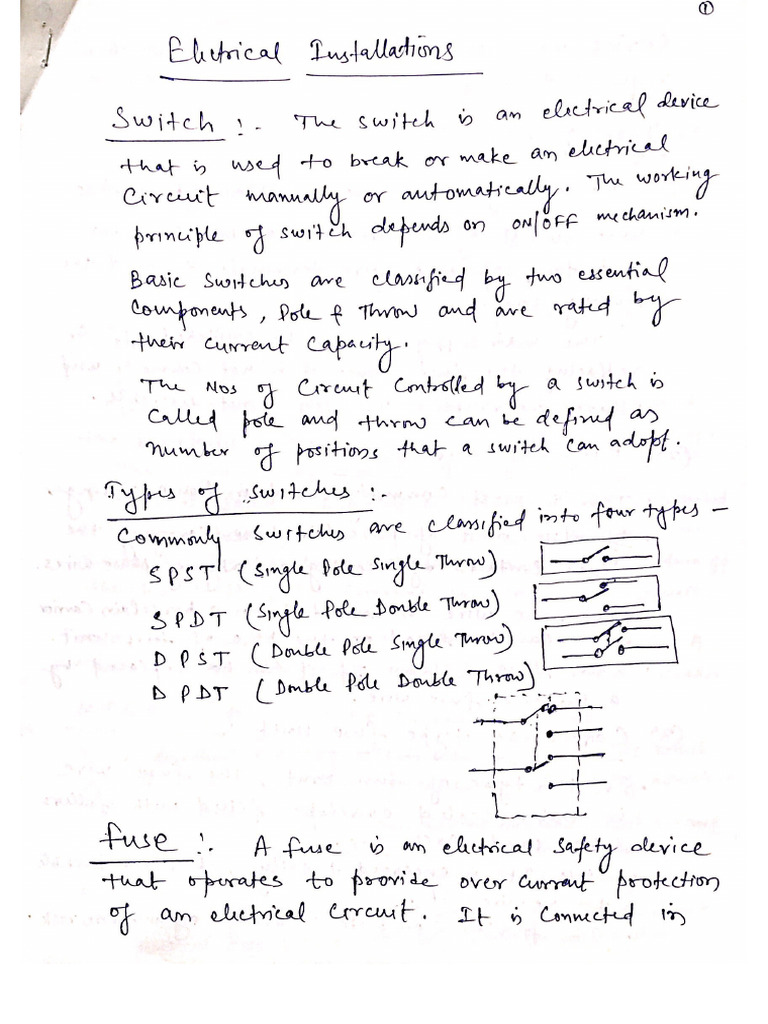 ①
Electrical Installations
Switch :- The switch is an electrical device
that is used to break or make an electrical
Circuit manually or automatically. The working
principle of switch depends on ON/OFF mechanism.
Basic switches are classified by two essential
Components, Pole & Throw and are rated by
their current capacity.
The Nos of Circuit Controlled by a switch is
called pole and throw can be defined as
number of positions that a switch can adopt.
Types of switches :-
Commonly switches are classified into four types -
SPST (Single Pole Single Throw)
SPDT (Single Pole Double Throw)
DPST (Double Pole Single Throw)
DPDT (Double Pole Double Throw)
fuse :- A fuse is an electrical safety device
that operates to provide over current protection
of an electrical circuit. It is connected in